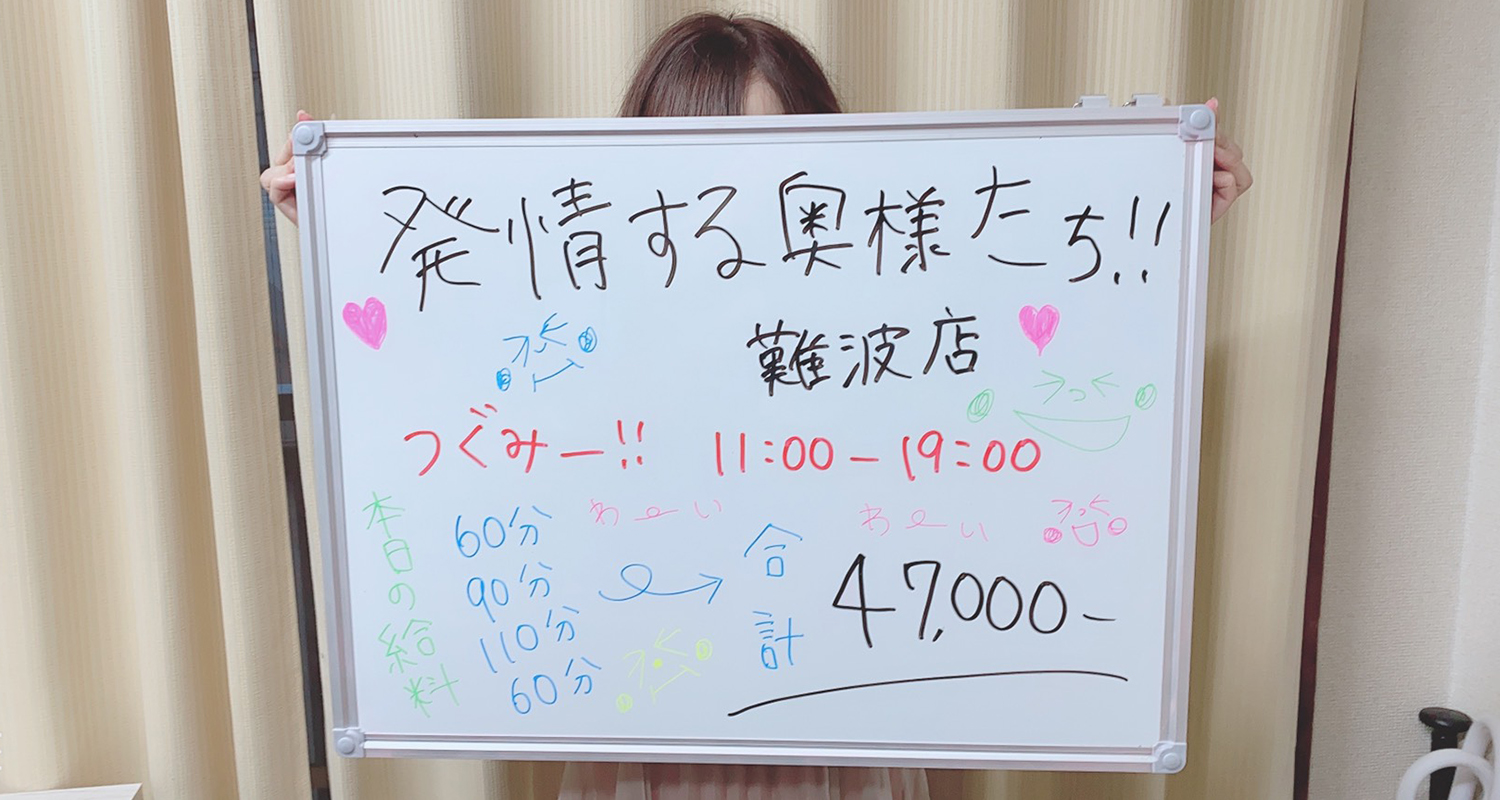 発情する奥様たち!!
難波店
つぐみー!! 11:00-19:00
わーい
わーい
本日の給料
60分
90分
110分
60分
合計
47,000-